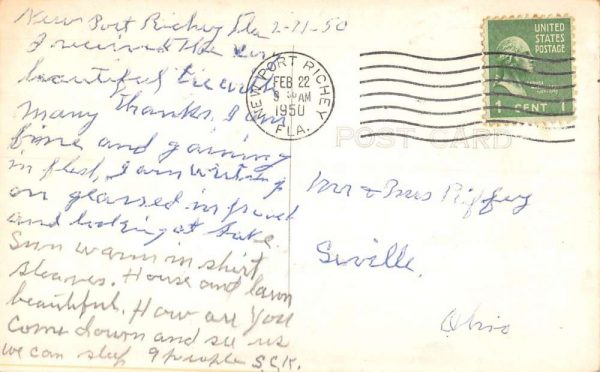 New Port Richey Fla 2-21-50
I received the
beautiful
many thanks. I am
fine and gaining
in flesh, I am writing
on glassed in
and looking at lake.
Sun warm in shirt
sleaves. House and lawn
beautiful. How are you
Come down and see us
we can sleep 9 people S.C.K.
NEW PORT RICHEY
FEB 22
9 AM
1950
FLA.
UNITED
STATES
POSTAGE
1 CENT 1
POST CARD
Mr & Mrs Piffey
Seville.
Ohio